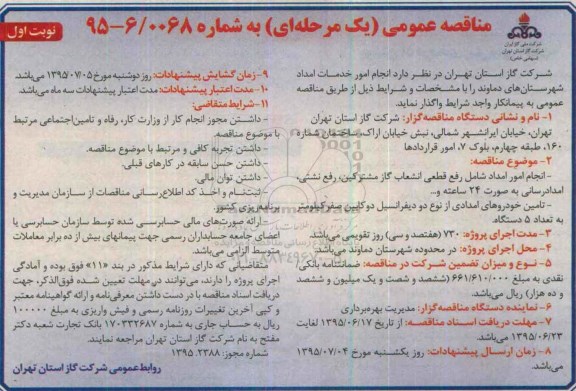 مناقصه عمومی (یک مرحله‌ای) به شماره ۶/۰۰۶۸-۹۵
نوبت اول
شرکت ملی گاز ایران
شرکت گاز استان تهران
(سهامی خاص)
شرکت گاز استان تهران در نظر دارد انجام امور خدمات امداد
شهرستان‌های دماوند را با مشخصات و شرایط ذیل از طریق مناقصه
عمومی به پیمانکار واجد شرایط واگذار نماید.
۱- نام و نشانی دستگاه مناقصه‌گزار: شرکت گاز استان تهران
تهران، خیابان ایرانشهر شمالی، نبش خیابان اراک، ساختمان شماره
۱۶۰، طبقه چهارم، بلوک ۷، امور قراردادها
۲- موضوع مناقصه:
- انجام امور امداد شامل رفع قطعی انشعاب گاز مشترکین، رفع نشتی،
امدادرسانی به صورت ۲۴ ساعته و...
- تامین خودروهای امدادی از نوع دو دیفرانسیل دو کابین صفر کیلومتر
به تعداد ۵ دستگاه
۳- مدت اجرای پروژه: ۷۳۰ (هفتصد و سی) روز تقویمی می‌باشد.
۴- محل اجرای پروژه: در محدوده شهرستان دماوند می‌باشد.
۵- نوع و میزان تضمین شرکت در مناقصه: ضمانتنامه بانکی/
نقدی به مبلغ ۶۶۱/۶۱۰/۰۰۰ (ششصد و شصت و یک میلیون و ششصد
و ده هزار) ریال می‌باشد.
۶- نماینده دستگاه مناقصه‌گزار: مدیریت بهره‌برداری
۷- مهلت دریافت اسناد مناقصه: از تاریخ ۱۳۹۵/۰۶/۱۷ لغایت
۱۳۹۵/۰۶/۲۳ می‌باشد.
۸- زمان ارسال پیشنهادات: روز یکشنبه مورخ ۱۳۹۵/۰۷/۰۴
می‌باشد.
۹- زمان گشایش پیشنهادات: روز دوشنبه مورخ ۱۳۹۵/۰۷/۰۵ می‌باشد.
۱۰- مدت اعتبار پیشنهادات: مدت اعتبار پیشنهادات سه ماه می‌باشد.
۱۱- شرایط متقاضی:
- داشتن مجوز انجام کار از وزارت کار، رفاه و تامین اجتماعی مرتبط
با موضوع مناقصه.
- داشتن تجربه کافی و مرتبط با موضوع مناقصه.
- داشتن حسن سابقه در کارهای قبلی.
- داشتن توان مالی.
- ثبت‌نام و اخذ کد اطلاع‌رسانی مناقصات از سازمان مدیریت و
برنامه‌ریزی کشور.
- ارائه صورت‌های مالی حسابرسی شده توسط سازمان حسابرسی یا
اعضای جامعه حسابداران رسمی جهت پیمانهای بیش از ده برابر معاملات
متوسط الزامی می‌باشد.
متقاضیانی که دارای شرایط مذکور در بند «۱۱» فوق بوده و آمادگی
اجرای پروژه را دارند، می‌توانند در مهلت تعیین شده فوق‌الذکر، جهت
دریافت اسناد مناقصه با در دست داشتن معرفی‌نامه و ارائه گواهینامه معتبر
و کپی آخرین تغییرات روزنامه رسمی و فیش واریزی به مبلغ ۱۰۰۰۰۰۰
ریال به حساب جاری به شماره ۱۷۰۳۳۲۶۸۷ بانک تجارت شعبه دکتر
مفتح به نام شرکت گاز استان تهران مراجعه نمایند.
شماره مجوز: ۲۳۸۸. ۱۳۹۵
روابط عمومی شرکت گاز استان تهران